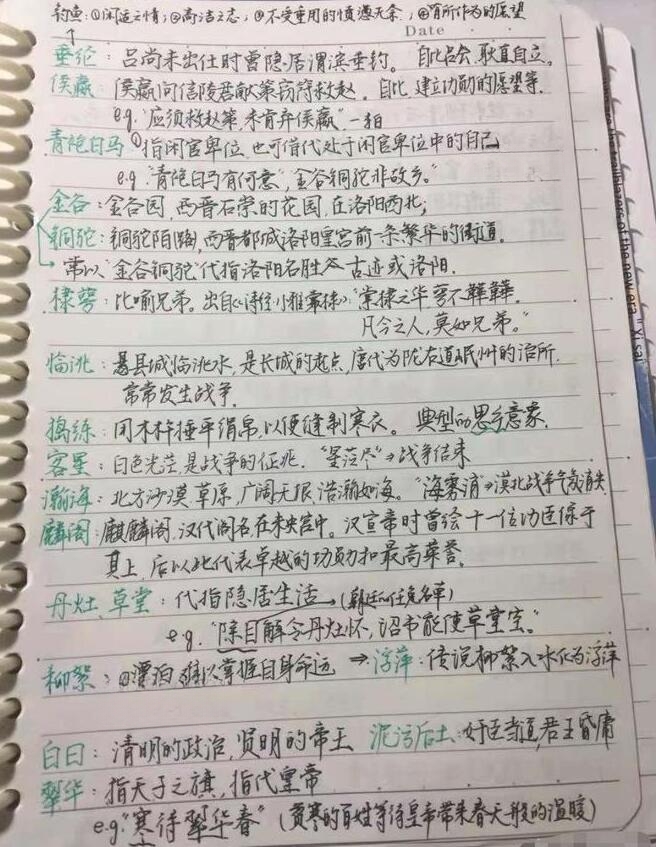 钓鱼：①闲适之情；②高洁之志；③不受重用的愤懑无奈；④有所作为的愿望
Date
垂纶：吕尚未出仕时曾隐居渭滨垂钓。自比吕尚，耿直自立。
侯嬴：侯嬴向信陵君献策窃符救赵。自比，建立功勋的愿望等。
e.g."应须救赵策，未肯弃侯嬴"一相
青袍白马①指闲官卑位，也可借代处于闲官卑位中的自己
e.g."青袍白马有何意，金谷铜驼非故乡。"
金谷：金谷园，西晋石崇的花园，在洛阳西北；
铜驼：铜驼陌路，西晋都城洛阳皇宫前一条繁华的街道。
常以"金谷铜驼"代指洛阳名胜古迹或洛阳．
棣萼：比喻兄弟。出自《诗经·小雅·棠棣》"棠棣之华，萼不韡韡．
凡今之人，莫如兄弟。"
临洮：县城临洮水，是长城的起点，唐代为陇右道岷州的治所．
常常发生战争．
捣练：用木杵捶平绢帛，以便缝制寒衣。典型的思乡意象．
客星：白色光芒，是战争的征兆．"星芒尽"→战争结束
瀚海：北方沙漠草原，广阔无垠，浩瀚如海。"海雾消"→漠北战争气氛消失
麟阁：麒麟阁，汉代阁名，在未央宫中。汉宣帝时曾绘十一位功臣像于
其上，后以此代表卓越的功勋和最高荣誉．
丹灶、草堂：代指隐居生活→（朝廷任免名单）
e.g."除目解令丹灶坏，诏书能使草堂空。"
柳絮：①漂泊 难以掌握自身命运 → 浮萍：传说柳絮入水化为浮萍
白日：清明的政治，贤明的帝王 泥污后土：奸臣当道，君王昏庸
翠华：指天子之旗，指代皇帝
e.g."寒待翠华春"（贫寒的百姓等待皇帝带来春天般的温暖）
the trailblazers of the new era." Xi said